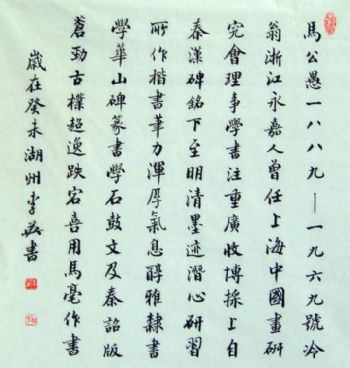 馬公愚一八八九—一九六九號冷
翁浙江永嘉人曾任上海中國畫研
究會理事學書注重廣收博採上自
秦漢碑銘下至明清墨迹潛心研習
所作楷書筆力渾厚氣息醇雅隸書
學華山碑篆書學石鼓文及秦詔版
蒼勁古樸超逸跌宕喜用馬毫作書
歲在癸未湖州李書